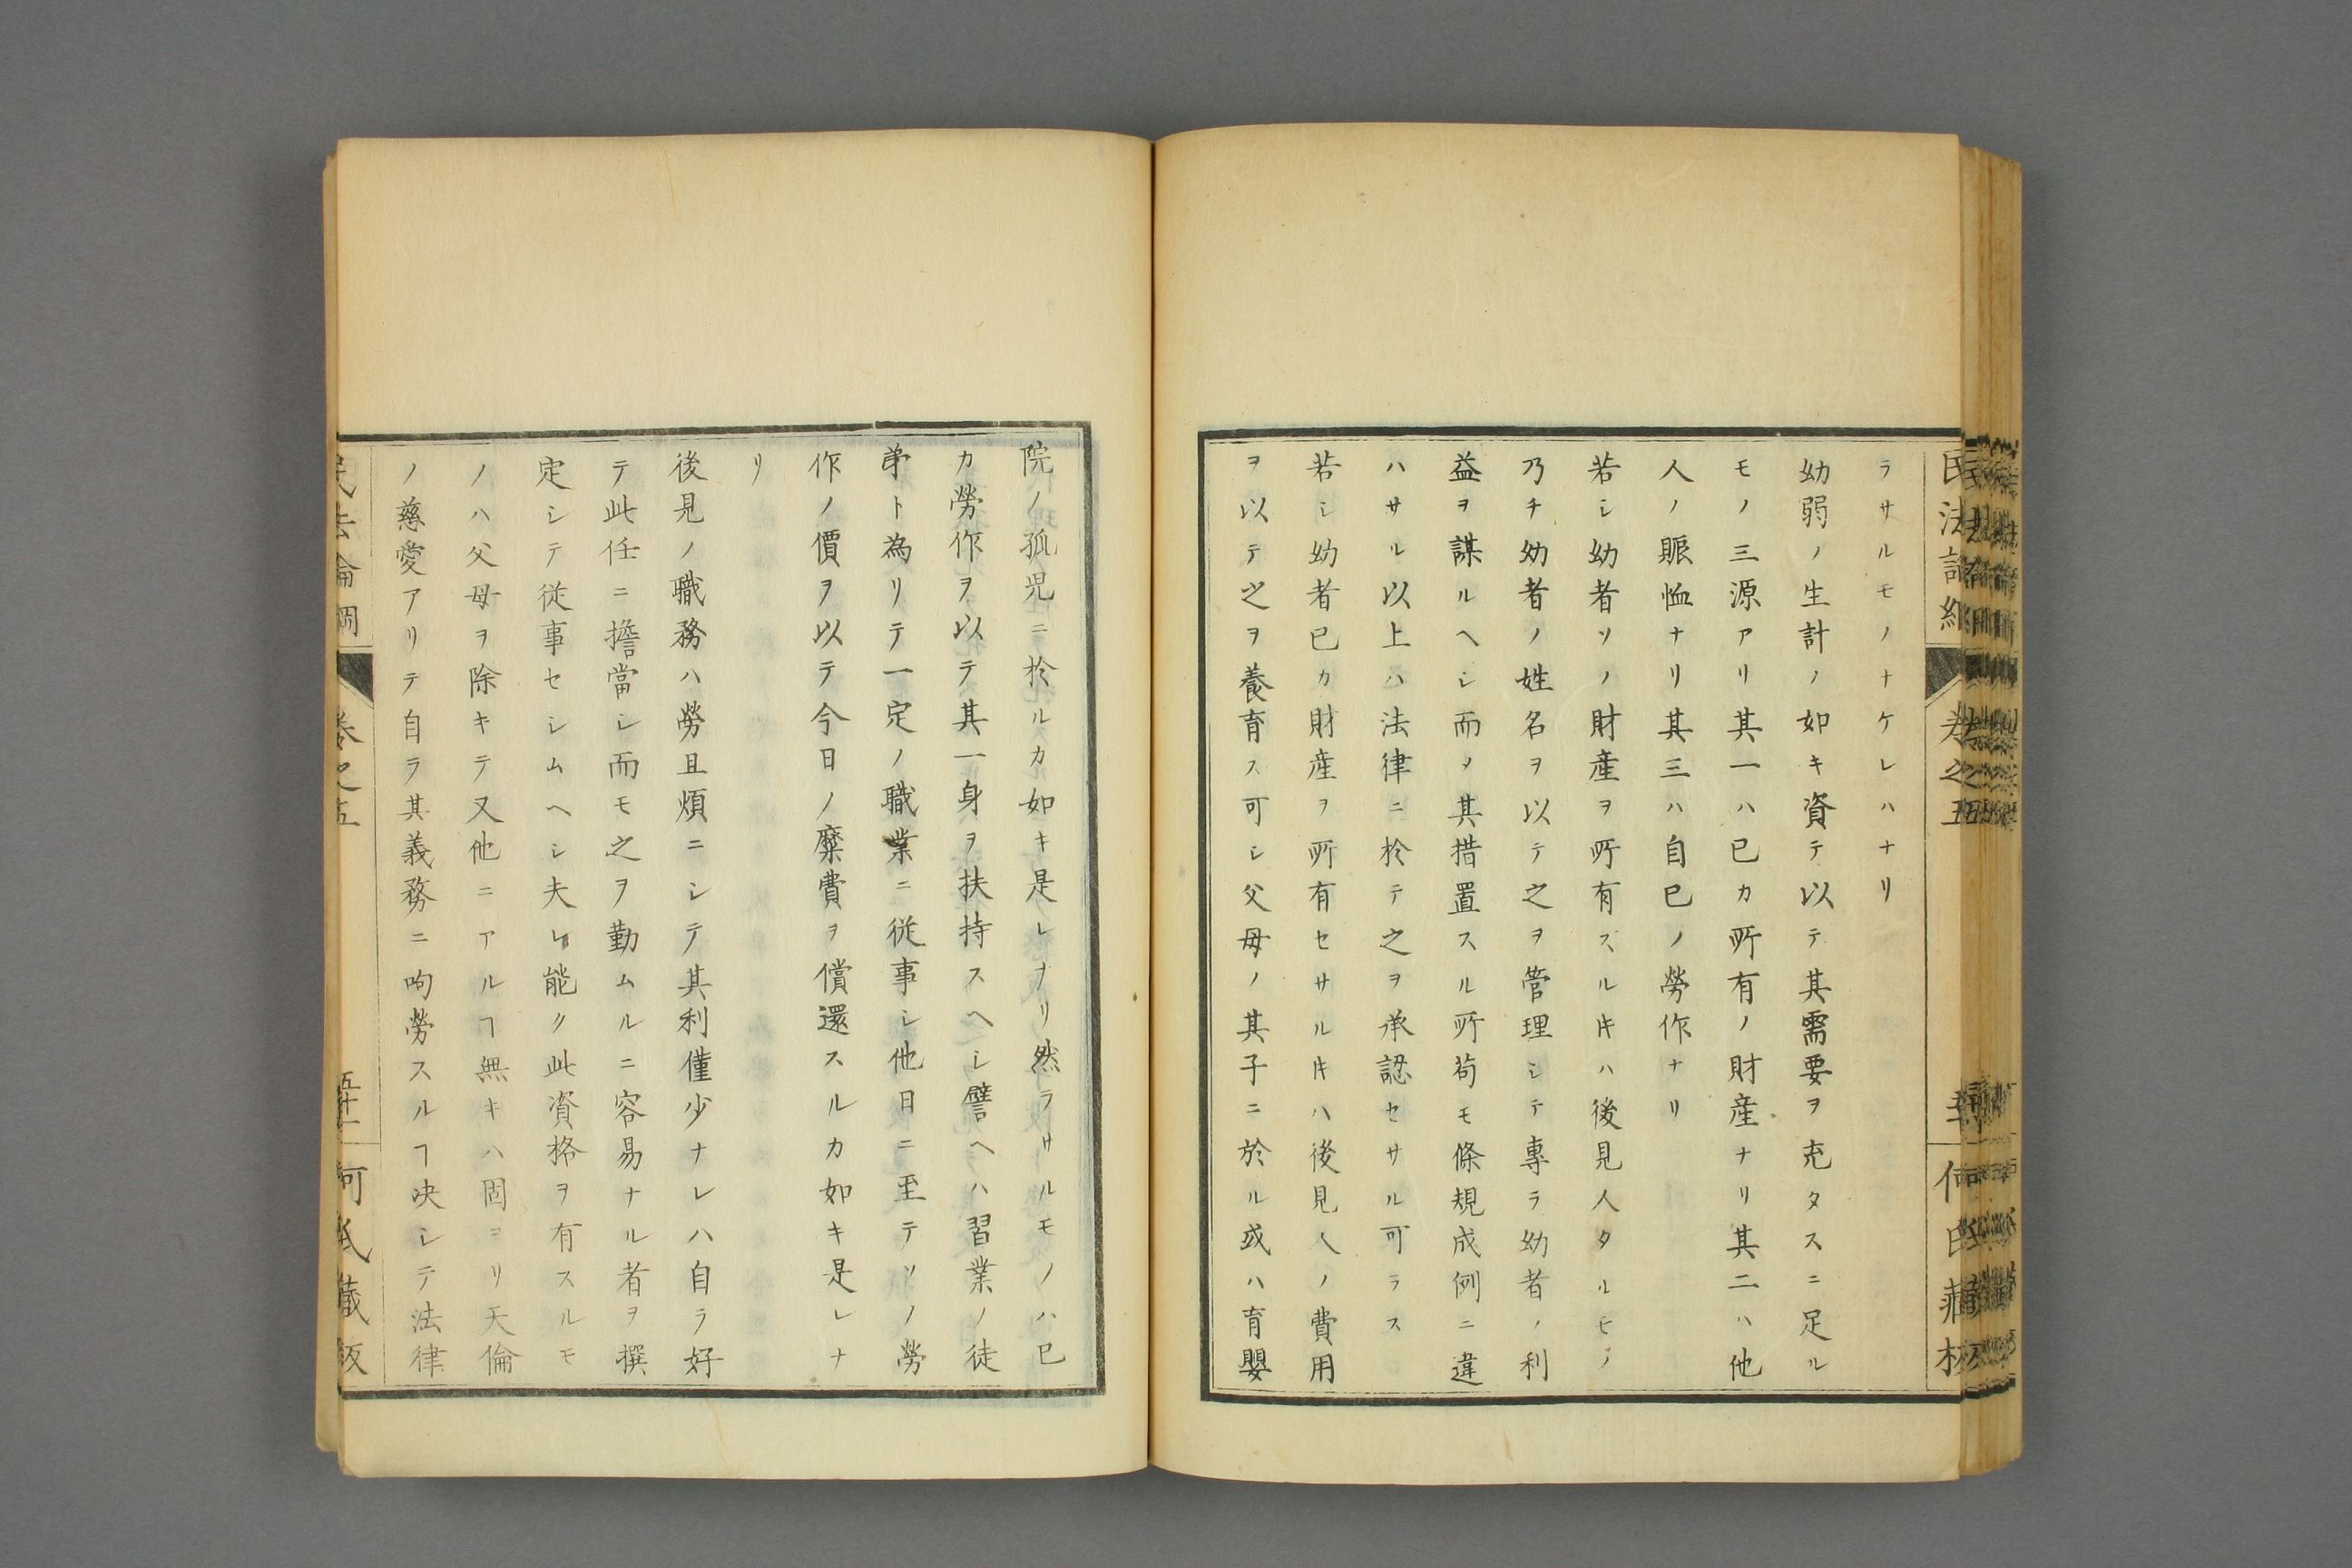 ラサルモノナケレハナリ
幼弱ノ生計ノ如キ資テ以テ其需要ヲ充タスニ足ル
モノ三源アリ其一ハ已カ所有ノ財産ナリ其二ハ他
人ノ賑恤ナリ其三ハ自已ノ勞作ナリ
若シ幼者ソノ財産ヲ所有スルキハ後見人タルモノ
乃チ幼者ノ姓名ヲ以テ之ヲ管理シテ專ラ幼者ノ利
益ヲ謀ルヘシ而ノ其措置スル所苟モ條規成例ニ違
ハサル以上ハ法律ニ於テ之ヲ承認セサル可ラス
若シ幼者已カ財産ヲ所有セサルキハ後見人ノ費用
ヲ以テ之ヲ養育ス可シ父母ノ其子ニ於ル或ハ育嬰
院ノ孤児ニ於ルカ如キ是レナリ然ラサルモノハ已
カ勞作ヲ以テ其一身ヲ扶持スヘシ譬ヘハ習業ノ徒
弟ト為リテ一定ノ職業ニ従事シ他日ニ至テソノ勞
作ノ價ヲ以テ今日ノ糜費ヲ償還スルカ如キ是レナ
リ
後見ノ職務ハ勞且煩ニシテ其利僅少ナレハ自ラ好
テ此任ニ擔當シ而モ之ヲ勤ムルニ容易ナル者ヲ撰
定シテ従事セシムヘシ夫レ能ク此資格ヲ有スルモ
ノハ父母ヲ除キテ又他ニアルヿ無キハ固ヨリ天倫
ノ慈愛アリテ自ラ其義務ニ呴勞スルヿ决シテ法律
民法論綱
卷之五
何氏藏版